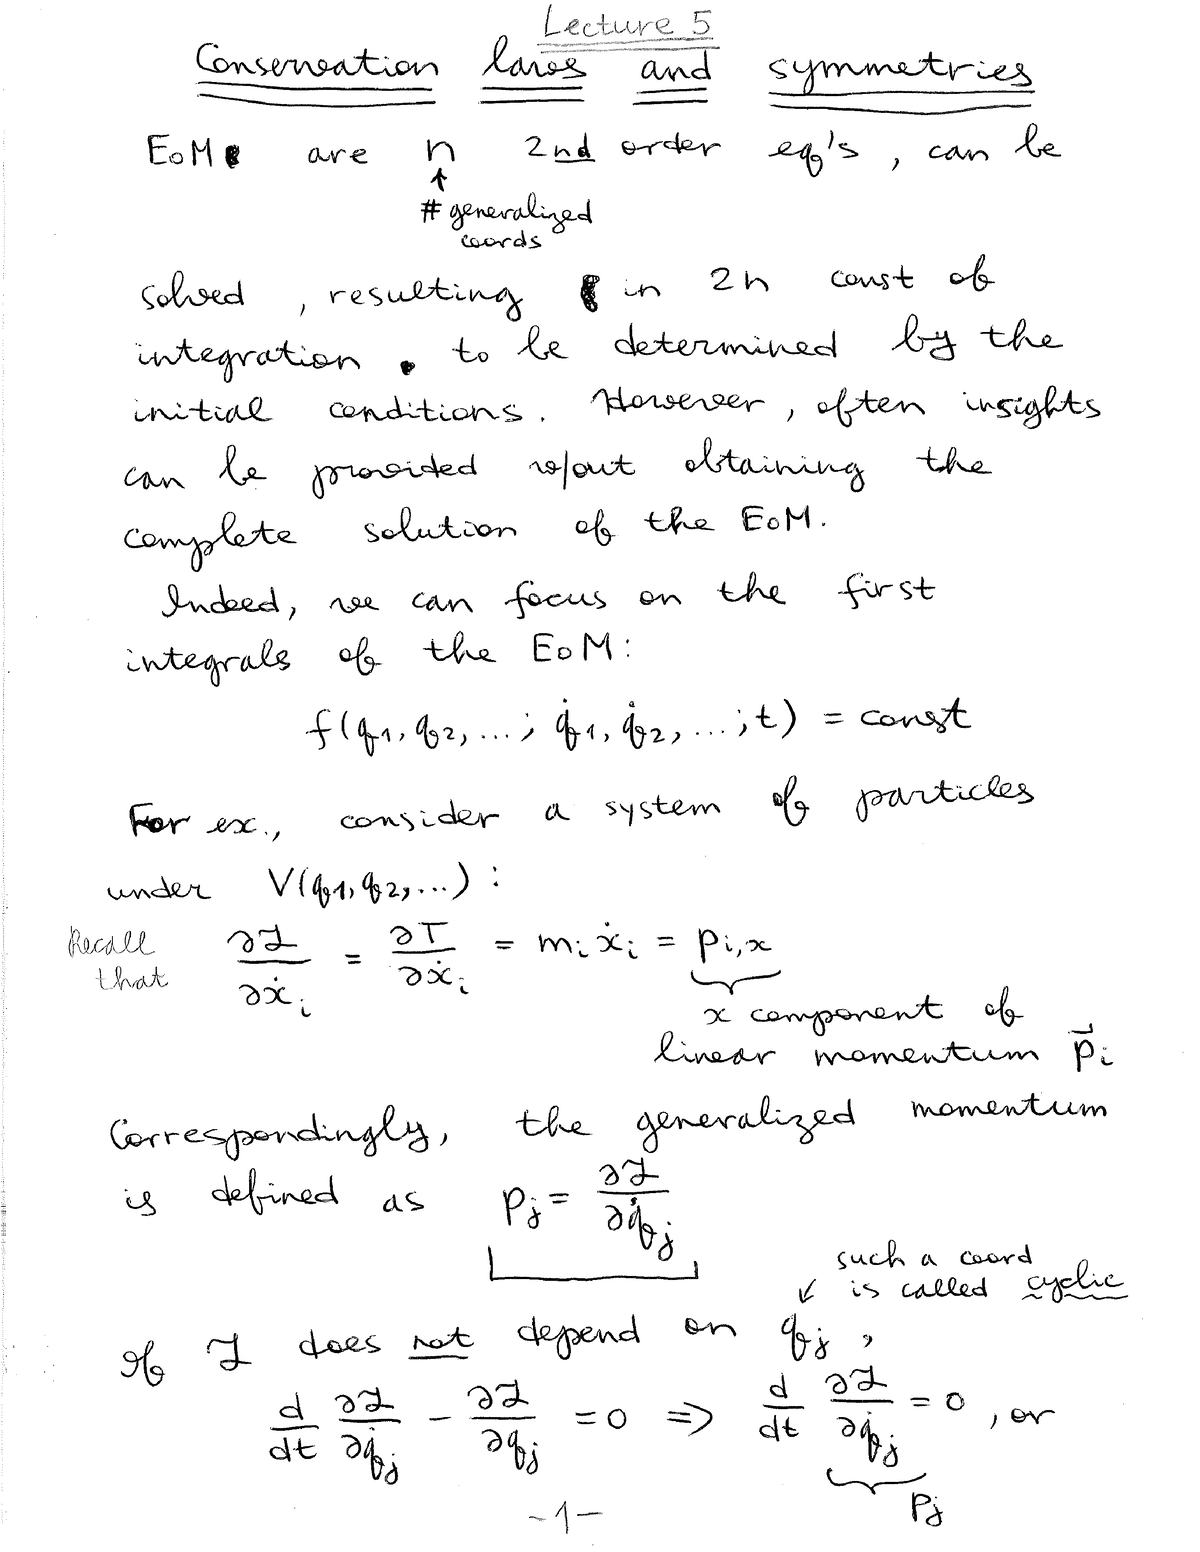 Lecture 5
Conservation laws and symmetries
EoM are n 2nd order eq's, can be
↑
# generalized
coords
solved, resulting in 2n const of
integration to be determined by the
initial conditions. However, often insights
can be provided w/out obtaining the
complete solution of the EoM.
Indeed, we can focus on the first
integrals of the EoM:
f(q₁, q₂, ...; q̇₁, q̇₂, ...; t) = const
For ex., consider a system of particles
under V(q₁, q₂, ...) :
Recall that ∂ℒ/∂ẋᵢ = ∂T/∂ẋᵢ = mᵢ ẋᵢ = p_{i,x}
x component of
linear momentum p⃗ᵢ
Correspondingly, the generalized momentum
is defined as pⱼ = ∂ℒ/∂q̇ⱼ
such a coord
↙ is called cyclic
If ℒ does not depend on qⱼ,
d/dt ∂ℒ/∂q̇ⱼ - ∂ℒ/∂qⱼ = 0 => d/dt ∂ℒ/∂q̇ⱼ = 0, or
pⱼ
-1-